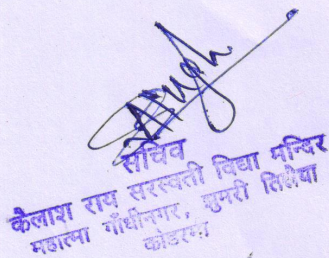 सचिव
कैलाश राय सरस्वती विद्या मन्दिर
महात्मा गाँधीनगर, झुमरी तिलैया
कोडरमा